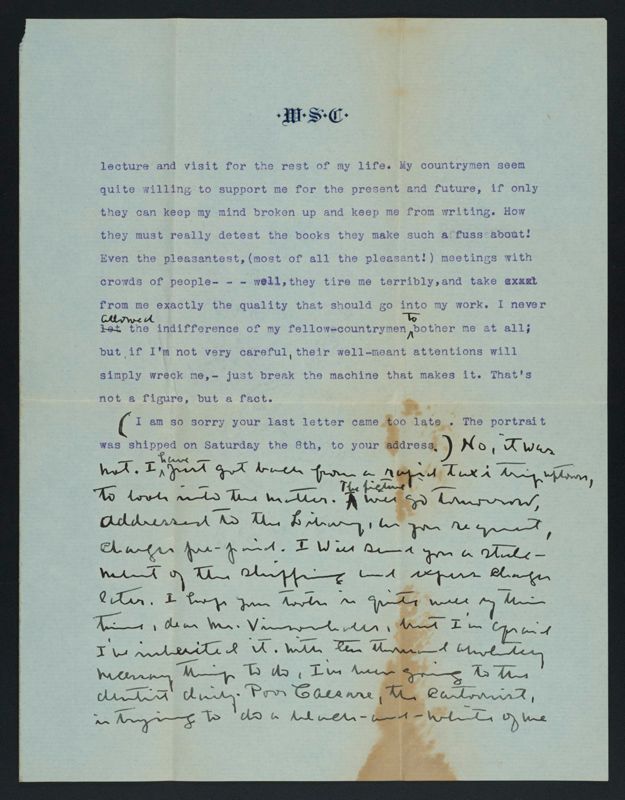 ·W·S·C·
lecture and visit for the rest of my life. My countrymen seem
quite willing to support me for the present and future, if only
they can keep my mind broken up and keep me from writing. How
they must really detest the books they make such a fuss about!
Even the pleasantest,(most of all the pleasant!) meetings with
crowds of people- - - well,they tire me terribly,and take exact
from me exactly the quality that should go into my work. I never
allowed to
let the indifference of my fellow-countrymen bother me at all;
but if I'm not very careful, their well-meant attentions will
simply wreck me,- just break the machine that makes it. That's
not a figure, but a fact.
( I am so sorry your last letter came too late . The portrait
was shipped on Saturday the 8th, to your address. ) No, it was
not. I have just got back from a rapid taxi trip uptown,
to look into the matter. The picture will go tomorrow,
addressed to the Library, as you request,
charges pre-paid. I will send you a state-
ment of the shipping and express charges
later. I hope your tooth is quite well by this
time, dear Mr. , but I'm afraid
I've inherited it. With ten thousand absolutely
necessary things to do, I've been going to the
dentist daily. Poor Caesare, the cartoonist,
is trying to do a black-and-white of me